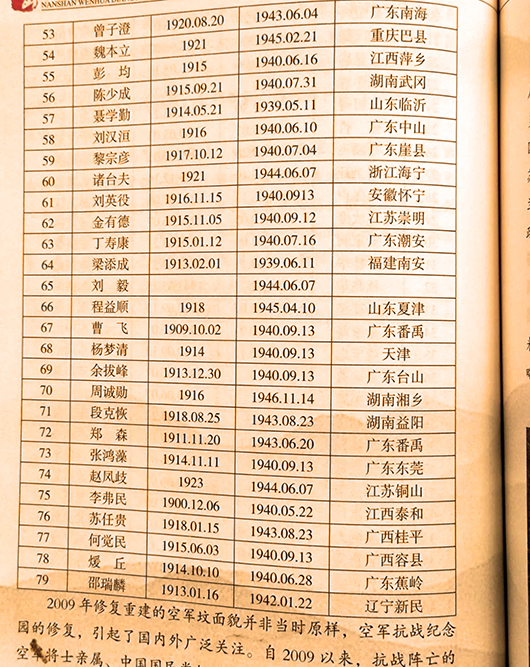 NANSHAN WENHUA
53 曾子澄 1920.08.20 1943.06.04 广东南海
54 魏本立 1921 1945.02.21 重庆巴县
55 彭 均 1915 1940.06.16 江西萍乡
56 陈少成 1915.09.21 1940.07.31 湖南武冈
57 聂学勤 1914.05.21 1939.05.11 山东临沂
58 刘汉洹 1916 1940.06.10 广东中山
59 黎宗彦 1917.10.12 1940.07.04 广东崖县
60 诸台夫 1921 1944.06.07 浙江海宁
61 刘英役 1916.11.15 1940.0913 安徽怀宁
62 金有德 1915.11.05 1940.09.12 江苏崇明
63 丁寿康 1915.01.12 1940.07.16 广东潮安
64 梁添成 1913.02.01 1939.06.11 福建南安
65 刘 毅 1944.06.07
66 程益顺 1918 1945.04.10 山东夏津
67 曹 飞 1909.10.02 1940.09.13 广东番禹
68 杨梦清 1914 1940.09.13 天津
69 余拔峰 1913.12.30 1940.09.13 广东台山
70 周诚勋 1916 1946.11.14 湖南湘乡
71 段克恢 1918.08.25 1943.08.23 湖南益阳
72 郑 森 1911.11.20 1943.06.20 广东番禹
73 张鸿藻 1914.11.11 1940.09.13 广东东莞
74 赵凤歧 1923 1944.06.07 江苏铜山
75 李弗民 1900.12.06 1940.05.22 江西泰和
76 苏任贵 1918.01.15 1943.08.23 广西桂平
77 何觉民 1915.06.03 1940.09.13 广西容县
78 煖 丘 1914.10.10 1940.06.28 广东蕉岭
79 邵瑞麟 1913.01.16 1942.01.22 辽宁新民
2009年修复重建的空军坟面貌并非当时原样，空军抗战纪念
园的修复，引起了国内外广泛关注。自2009以来，抗战阵亡的
空军将士亲属、中国国民党